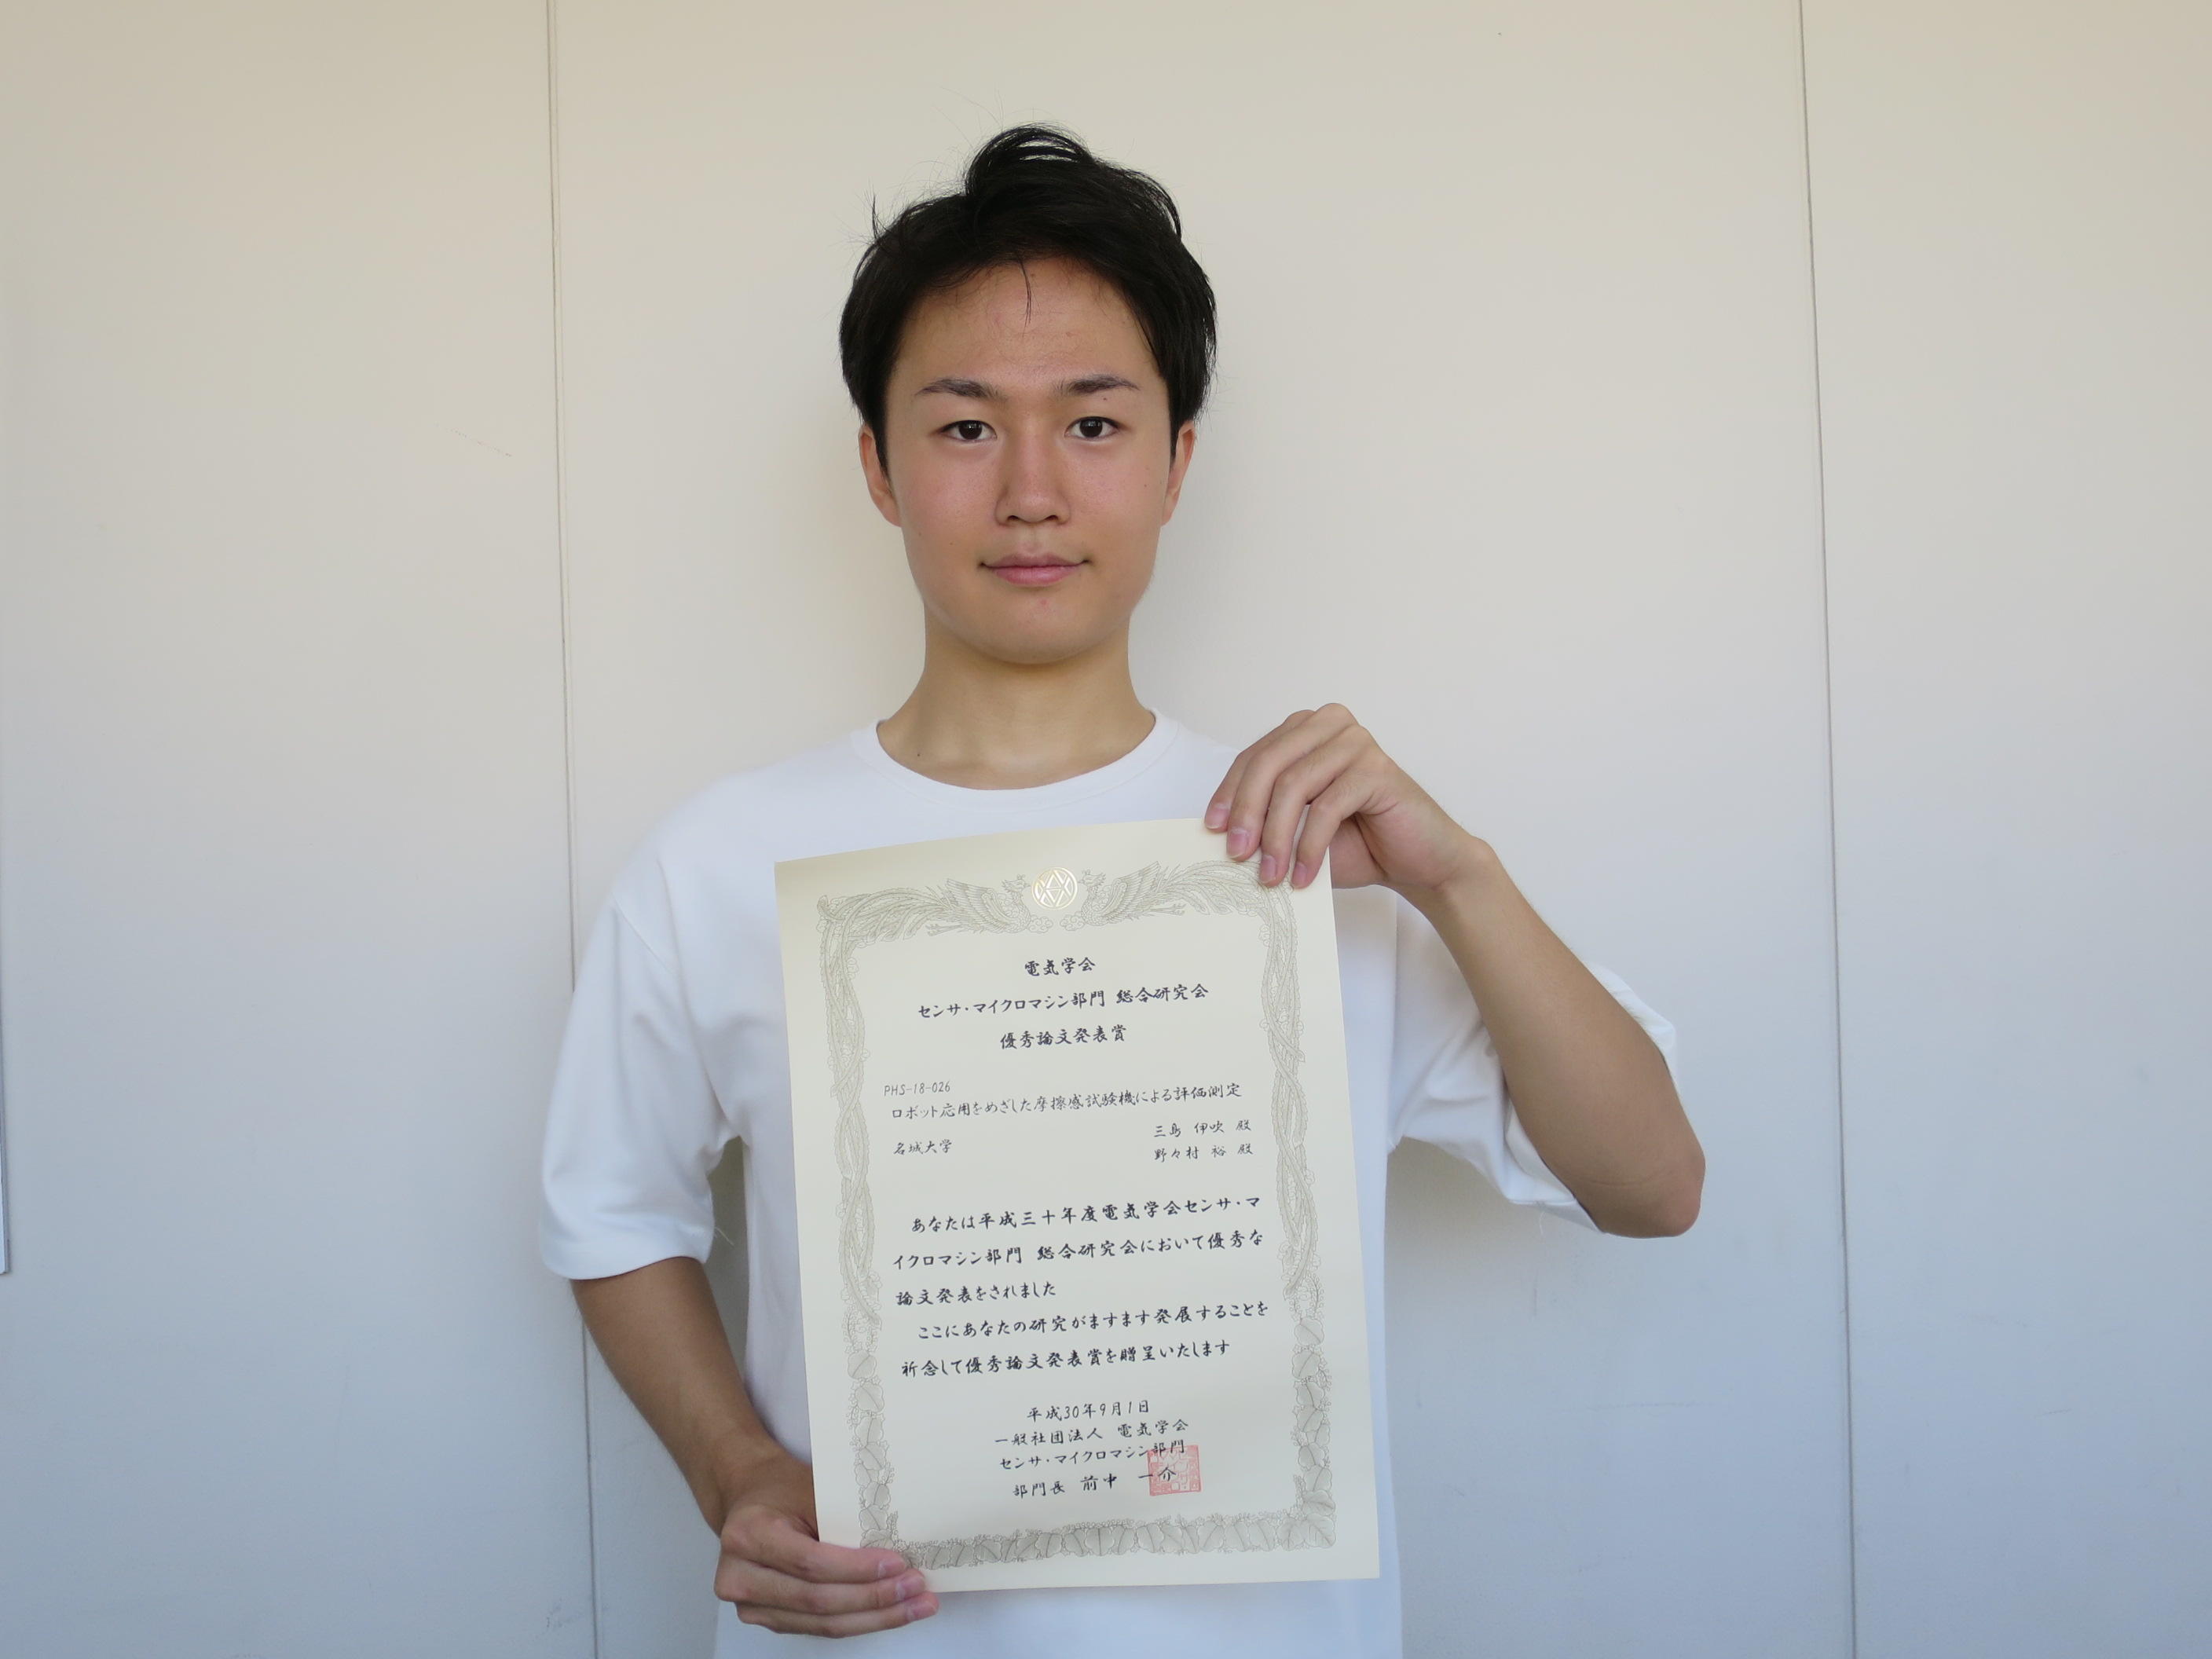 電気学会
センサ・マイクロマシン部門 総合研究会
優秀論文発表賞
PHS-18-026
ロボット応用をめざした摩擦感試験機による評価測定
名城大学
三島 伊吹 殿
野々村 裕 殿
あなたは平成三十年度電気学会センサ・マ
イクロマシン部門 総合研究会において優秀な
論文発表をされました
ここにあなたの研究がますます発展することを
祈念して優秀論文発表賞を贈呈いたします
平成30年9月1日
一般社団法人 電気学会
センサ・マイクロマシン部門
部門長 前中 一介